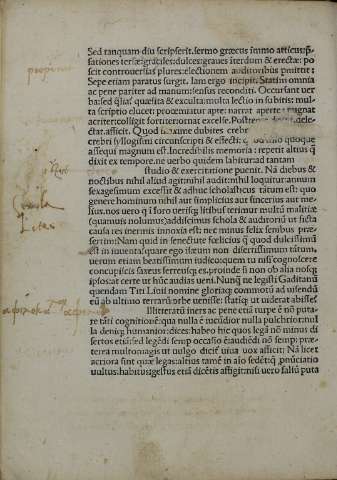 Sed tanquam diu scripserit. sermo græcus immo atticus: p̄-
fationes tersæ: graciles: dulces: graues īterdum & erectæ: po-
scit controuersias plures: electionem auditoribus pmittit:
Sepe etiam partes surgit. Iam ergo incipit. Statim omnia
ac pene pariter ad manum: sensus reconditi. Occursant uer
ba: sed q̄lia: quæsita & exculta: multa lectio in subitis: mul
ta scriptio elucet: prœmiatur apte: narrat aperte: pugnat
acriter: colligit fortiter: ornat excelse. Postremo docet: dele-
ctat. afficit. Quod maxime dubites crebr
crebri syllogismi circunscripti & effecti: quoque
assequi magnum est. Incredibilis memoria: repetit altius q̄
dixit ex tempore. ne uerbo quidem labitur: ad tantam
studio & exercitatione puenit. Nā diebus &
noctibus nihil aliud agit: nihil audit: nihil loquitur: annum
sexagesimum excessit & adhuc scholasticus tātum est: quo
genere hominum nihil aut simplicius aut sincerius aut me-
lius. nos uero q̄ ī foro uerisq̄ litibus terimur multū malitiæ
(quanuis nolumus) addiscimus schola & auditoriū ut ficta
causa res inermis innoxia est: nec minus felix senibus præ-
sertim: Nam quid in senectute fœlicius q̄ quod dulcissimū
est in iuuenta: quare ego isæum non disertissimum tātum.
uerum etiam beatissimum iudico: quem tu nisi cognoscere
concupiscis saxeus ferreusq; es. proinde si non ob alia nosq;
ipsos: at certe ut hūc audias ueni. Nunq̄ ne legisti Gaditanū
quendam Titi Liuii nomine gloriaq; commotū ad uisendū
eū ab ultimo terrarū orbe uenisse: statiq; ut uiderat abiisse
Illitteratū iners ac pene etiā turpe ē nō puta
re tāti cognitionē: qua nulla ē iucūdior nulla pulchrior: nul
la deniq; humanior: dices: habeo hic quos legā nō minus di
sertos etiā: sed legēdi semp occasio ē: audiēdi nō semp: præ-
terea multo magis ut uulgo dicit̄ uiua uox afficit: Nā licet
acriora sint quæ legas: altius tamē in aīo sedēt q̄ p̄nūciatio
uultus: habitus: gestus etiā dicētis affigit: nisi uero falsū puta